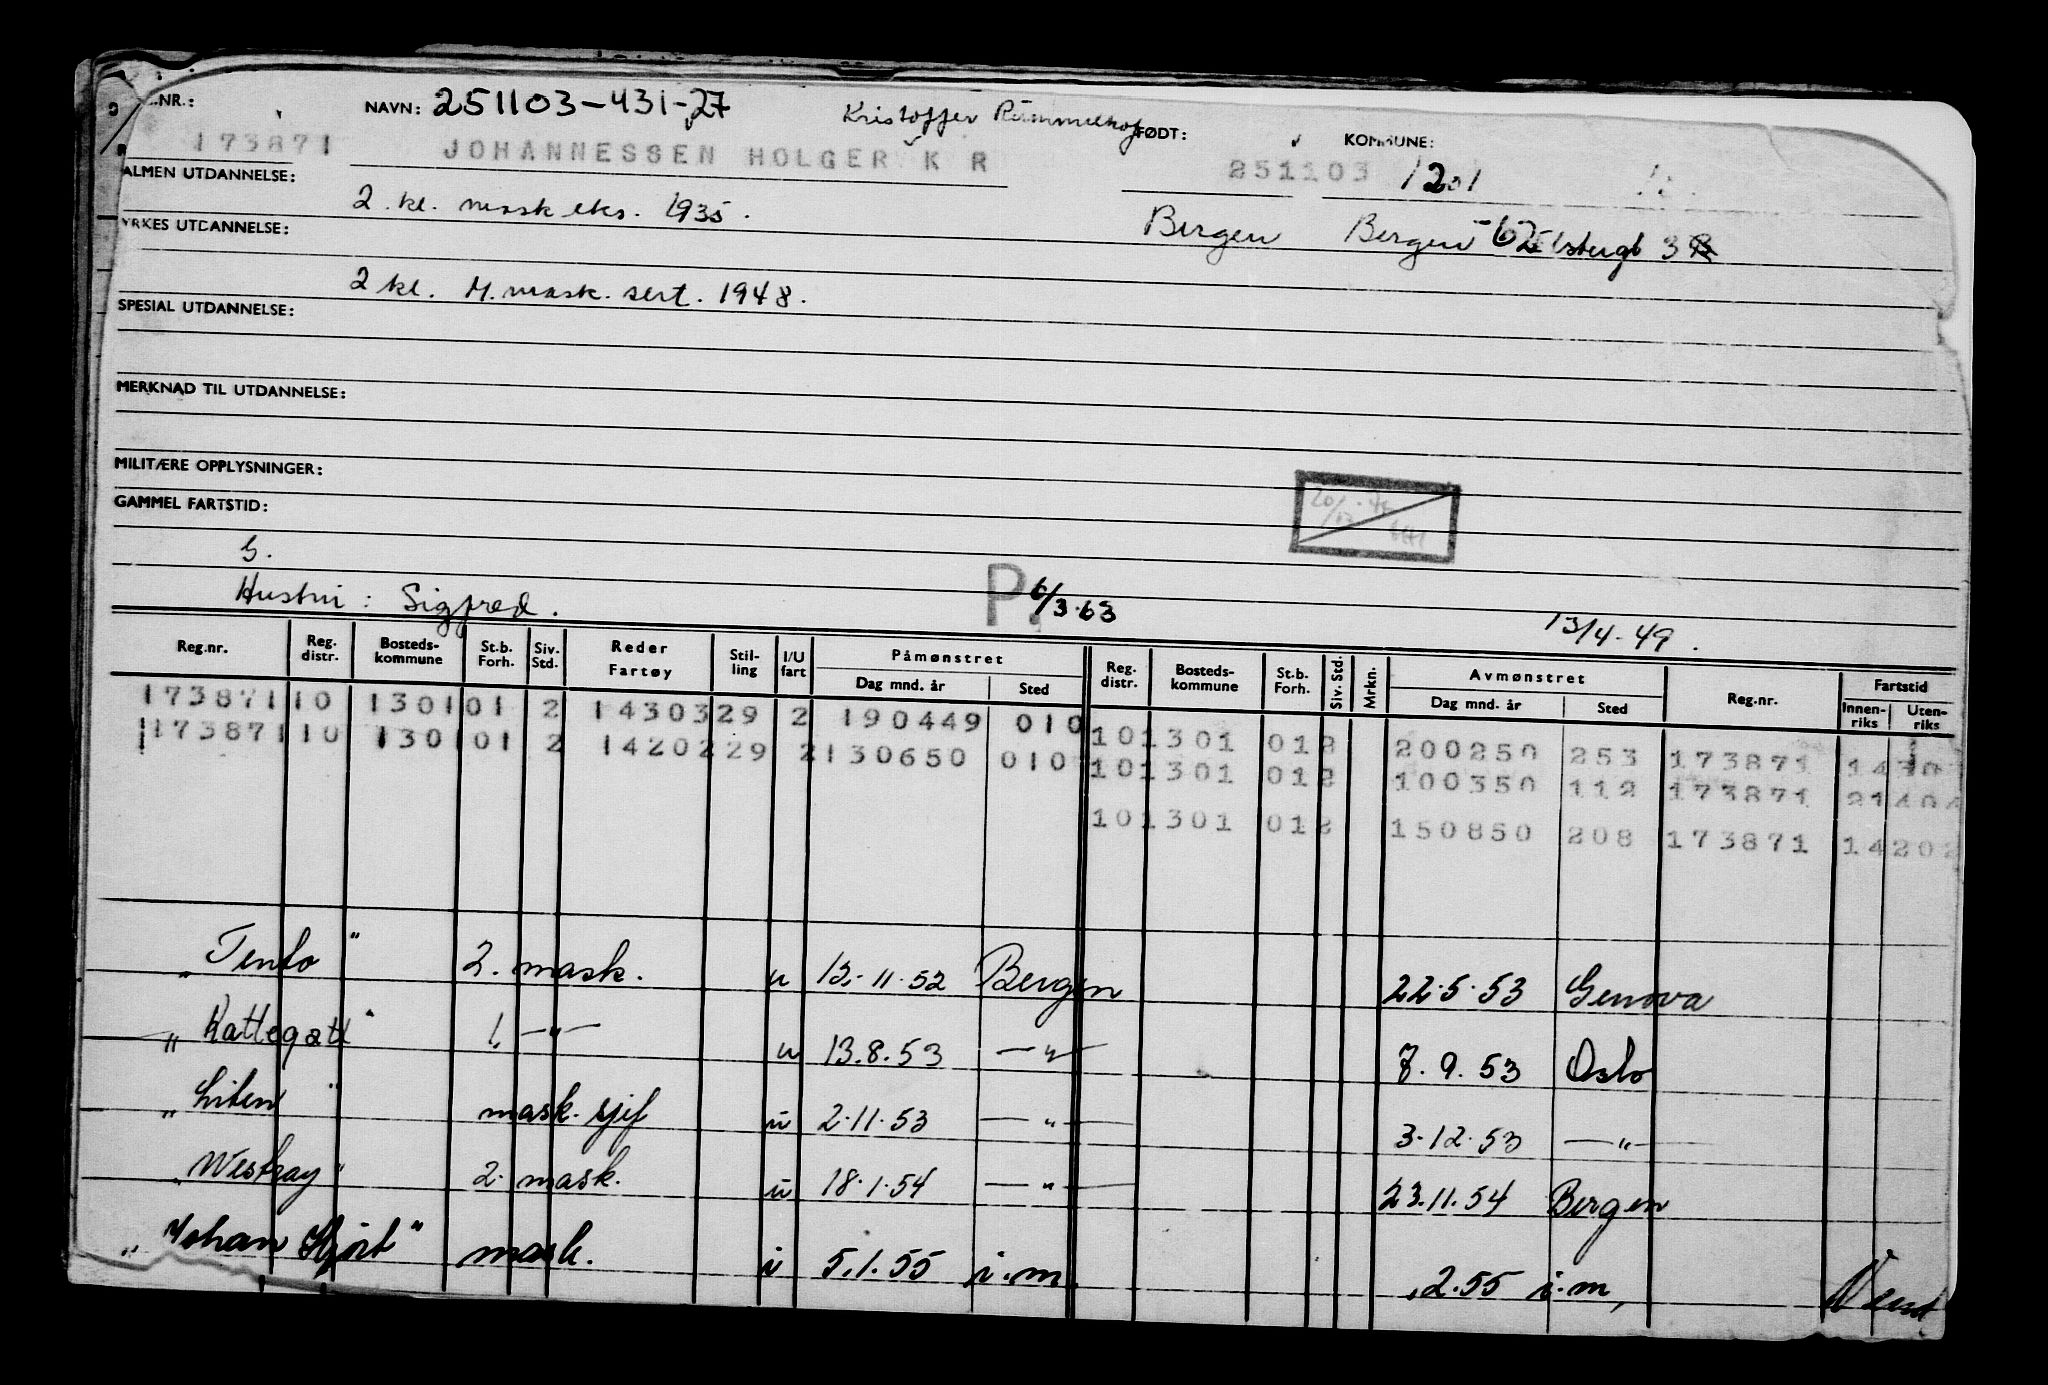 NR.: NAVN: 251103-431-27 Kristoffer FØDT: KOMMUNE:
173871 JOHANNESSEN HOLGER K R 251103 1201
ALMEN UTDANNELSE:
2. kl. mask.eks. 1935. Bergen Bergen
YRKES UTDANNELSE:
2 kl. M.mask. sert. 1948.
SPESIAL UTDANNELSE:
MERKNAD TIL UTDANNELSE:
MILITÆRE OPPLYSNINGER:
GAMMEL FARTSTID:
G.
Hustru: Sigfred. P. 6/3.63 13/4-49.
Reg.nr. Reg. distr. Bosteds-kommune St.b. Forh. Siv. Std. Reder Fartøy Stil-ling I/U fart Påmønstret Dag mnd. år Sted Reg. distr. Bosteds-kommune St.b. Forh. Siv. Std. Mrkn. Avmønstret Dag mnd. år Sted Reg.nr. Fartstid Innen-riks Uten-riks
173871 10 1301 01 2 14303 29 2 190449 010 10 1301 01 2 200250 253 173871
173871 10 1301 01 2 14202 29 2 130650 010 10 1301 01 2 100350 112 173871
10 1301 01 2 150850 208 173871 14202
2. mask. u 13.11.52 Bergen 22.5.53 Genova
„Kattegatt" 1. —"— u 13.8.53 —"— 7.9.53 Oslo
mask. sjef u 2.11.53 —"— 3.12.53 —"—
„Westray" 2. mask. u 18.1.54 —"— 23.11.54 Bergen
„Johan Hjort" mask. i 5.1.55 i.m. .2.55 i.m. Vend